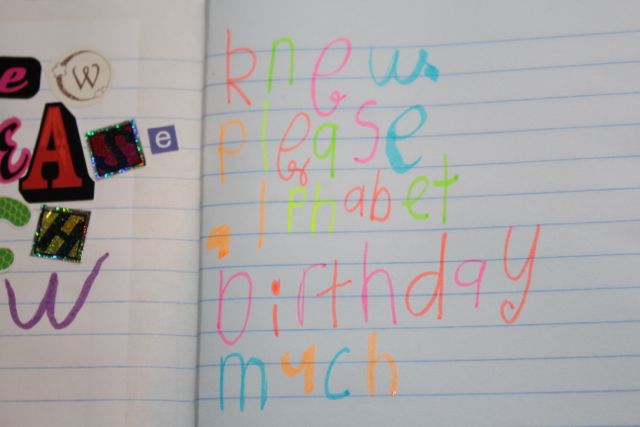 e W
knew
EASe
please
alphabet
H
birthday
w
much